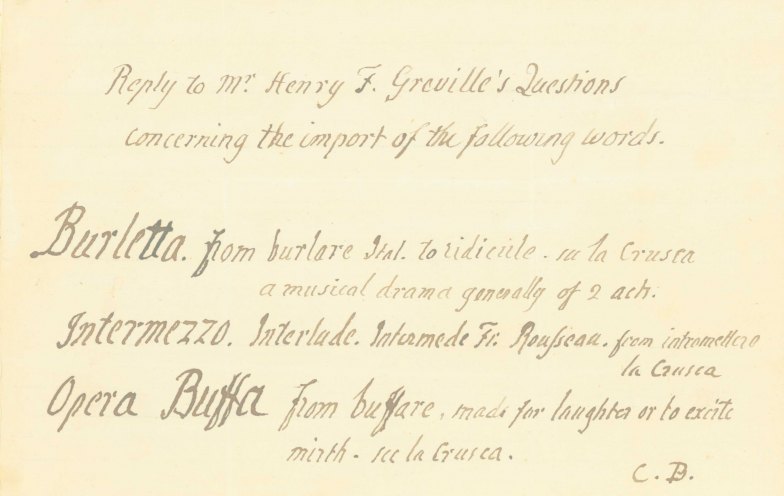 Reply to Mr. Henry F. Greville's Questions
concerning the import of the following words.
Burletta. from burlare Ital. to ridicule. see la Crusca
a musical drama generally of 2 acts.
Intermezzo. Interlude. Intermede Fr. Rousseau. from intromettere
la Crusca
Opera Buffa from buffare, made for laughter or to excite
mirth - see la Crusca.
C. B.